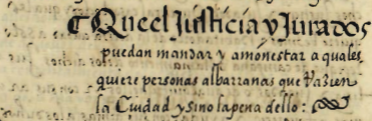 ¶ Que el Justicia y Jurados
puedan mandar y amonestar a quales
quiere personas albarranas que vazien
la Ciudad y sino la pena dello: